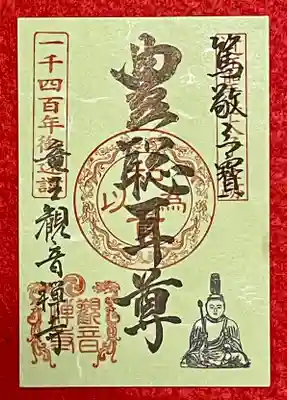 篤敬三寳
豊聡耳尊
以為
一千四百年御遠諱
觀音禅寺
觀音禅寺